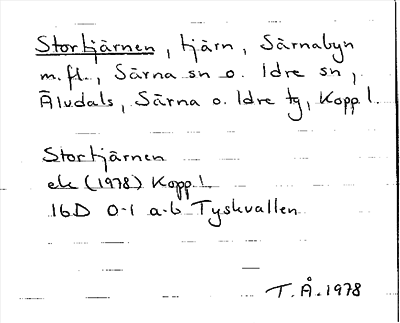 Stortjärnen, tjärn, Särnabyn
m.fl., Särna sn o. Idre sn,
Älvdals, Särna o. Idre tg, Kopp. l.
Stortjärnen
ek (1978) Kopp. l.
16D 0-1 a-b Tyskvallen
T. Å. 1978